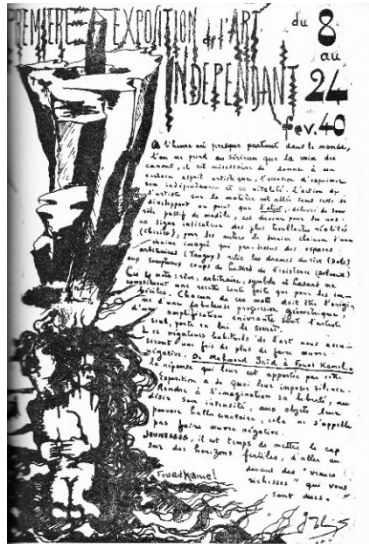 PREMIERE EXPOSITION de l'ART
INDEPENDANT
du 8
au
24
fev. 40
A l'heure où presque partout dans le monde,
l'on ne prend au sérieux que la voix des
canons, il est nécessaire de donner à un
certain esprit artistique, l'occasion d'exprimer
son indépendance et sa vitalité. L'action de
l'artiste sur la matière est allée sans cesse se
développant au point que l'objet, de son
rôle passif de modèle, est devenu pour les uns:
un signe indicateur des plus réalités
(chirico), pour les autres le terrain chacun d'une
chaine imagée qui par-dessus des espaces
(Tanguy) relie les drames du rire (Dali)
aux somptueux coups de hasard de l'existence (Delvaux)
Car les mots: rêve, arbitraire, symbole et hasard ne
constituent une recette toute faite que pour les
Chacun de ces mots doit être l'origine
d'une fabuleuse progression géométrique
d'une amplification enivrante dont l'artiste
seul, porte en lui le secret.
Les négateurs habituels de l'art nous
seront une fois de plus de faire œuvre
négative. De Mahmoud Saïd à Fouad Kamel.
la réponse qui leur est apportée par cette
exposition a de quoi leur imposer silence.
Rendre à l'imagination sa liberté, au
désir son intensité, aux objets leur
pouvoir hallucinatoire, cela ne s'appelle
pas faire œuvre négative.
JEUNESSE, il est temps de mettre le cap
sur des horizons fertiles, d'aller au
devant des "vraies
richesses" qui vous
sont dues.
Fouad Kamel